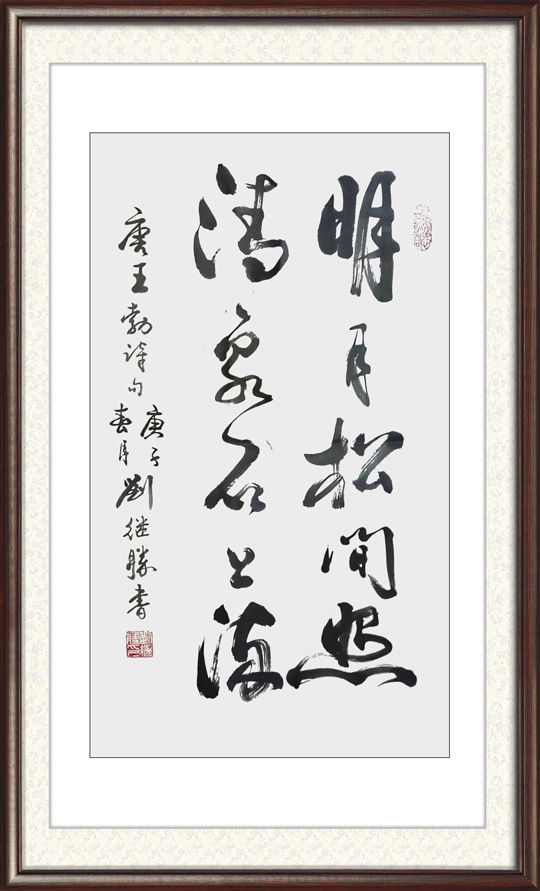 明月松间照
清泉石上流
唐王勃诗句
庚子
春月刘继勝书